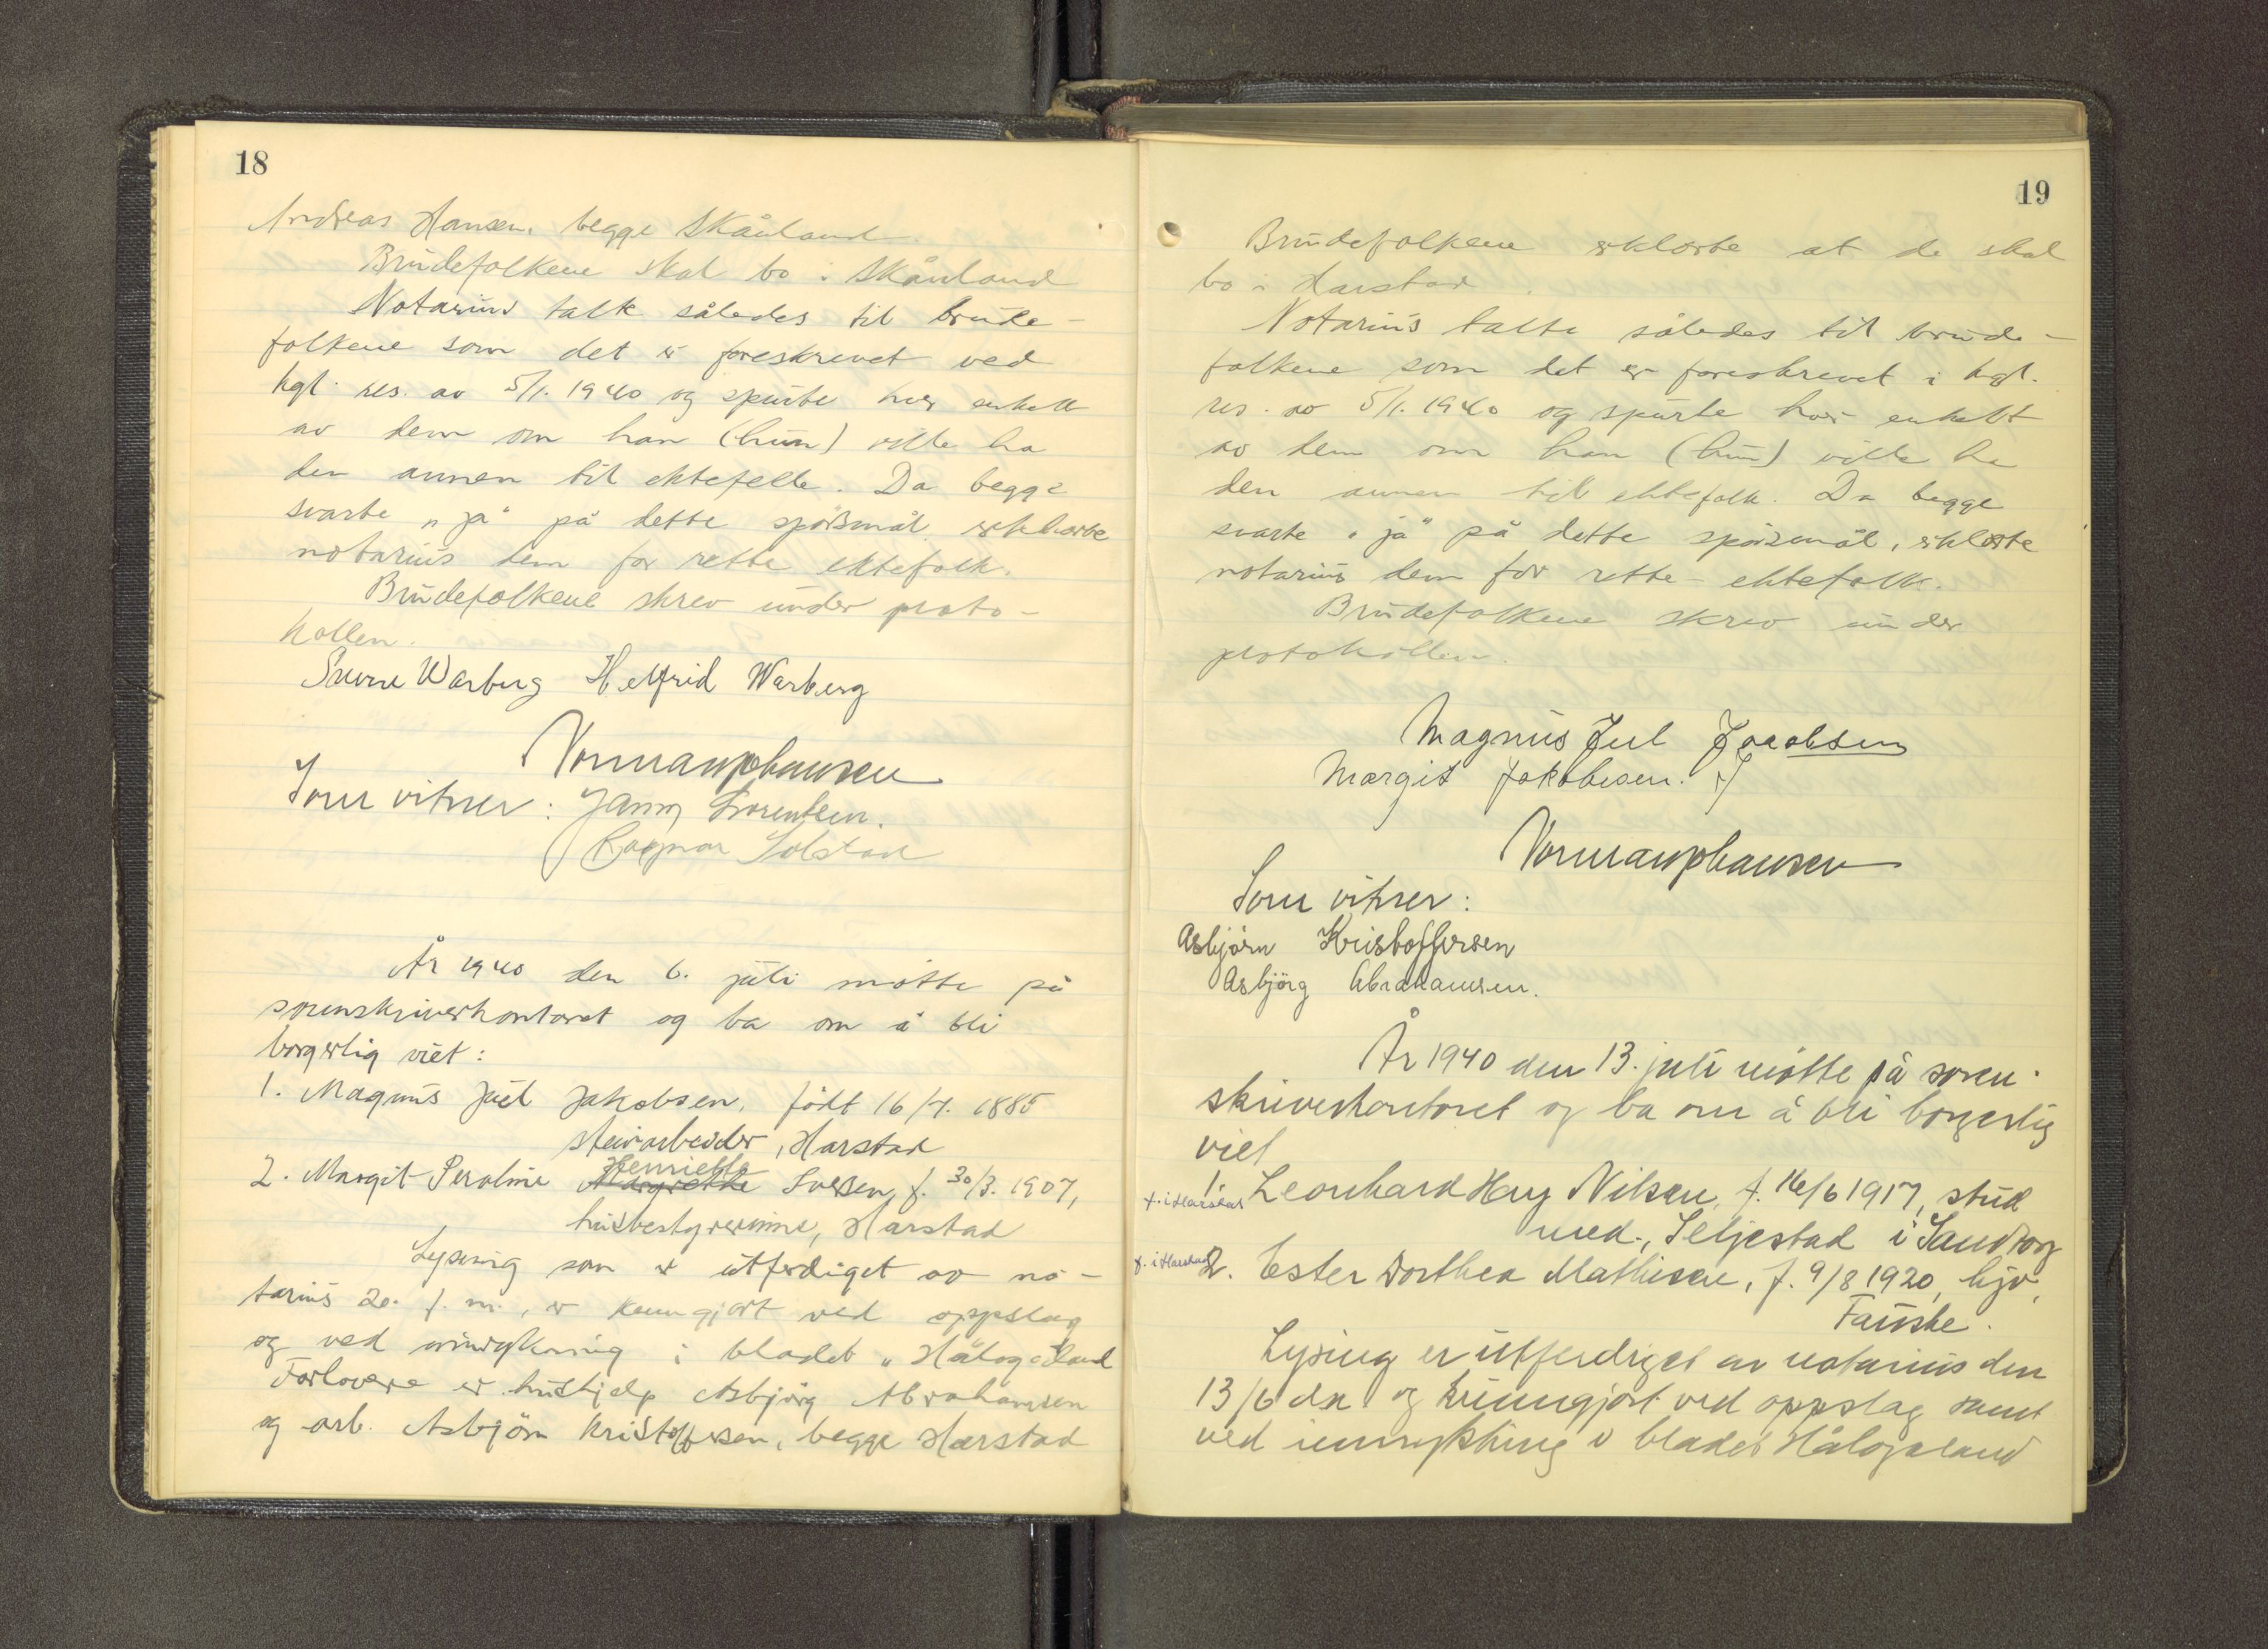 18
Andreas Hansen, begge Skånland
Brudefolkene skal bo i Skånland
Notarius talte således til brude-
folkene som det er foreskrevet ved
kgl. res. av 5/1. 1940 og spurte hver enkelt
av dem om han (hun) ville ha
den annen til ektefelle. Da begge
svarte „ja" på dette spörsmål erklærte
notarius dem for rette ektefolk.
Brudefolkene skrev under proto-
kollen.
Sverre Warberg Helfrid Warberg
Normann Johansen
Som vitner: Jenny Lorentsen.
Ragnar Solstad
År 1940 den 6. juli møtte på
sorenskriverkontoret og ba om å bli
borgerlig viet:
1. Magnus Juel Jakobsen, född 16/7. 1885
steinarbeider, Harstad
Henriette
2. Margit Peroline Margrethe Iversen, f. 30/3. 1907,
husbestyrerinne, Harstad
Lysning som er utferdiget av no-
tarius 20. f. m., er kunngjort ved oppslag
og ved innrykning i bladet „Hålogaland
Forlovere er hushjelp Asbjörg Abrahamsen
og arb. Asbjörn Kristoffersen, begge Harstad
19
Brudefolkene erklærte at de skal
bo i Harstad.
Notarius talte således til brude-
folkene som det er foreskrevet i kgl.
res. av 5/1. 1940 og spurte hver enkelt
av dem om han (hun) ville ha
den annen til ektefolk. Da begge
svarte „ja" på dette spörsmål, erklærte
notarius dem for rette ektefolk.
Brudefolkene skrev under
protokollen.
Magnus Jul Jacobsen
Margit Jakobsen.
Normann Johansen
Som vitner:
Asbjörn Kristoffersen
Asbjörg Abrahamsen.
År 1940 den 13. juli møtte på soren-
skriverkontoret og ba om å bli borgerlig
viet
f. i Harstad 1. Leonhard Hay Nilsen, f. 16/6 1917, stud
med., Seljestad i Sandtorg
f. i Harstad 2. Ester Dorthea Mathisen, f. 9/8 1920, hjv,
Fauske.
Lysing er utferdiget av notarius den
13/6 da og kunngjort ved oppslag samt
ved innrykking i bladet Hålogaland